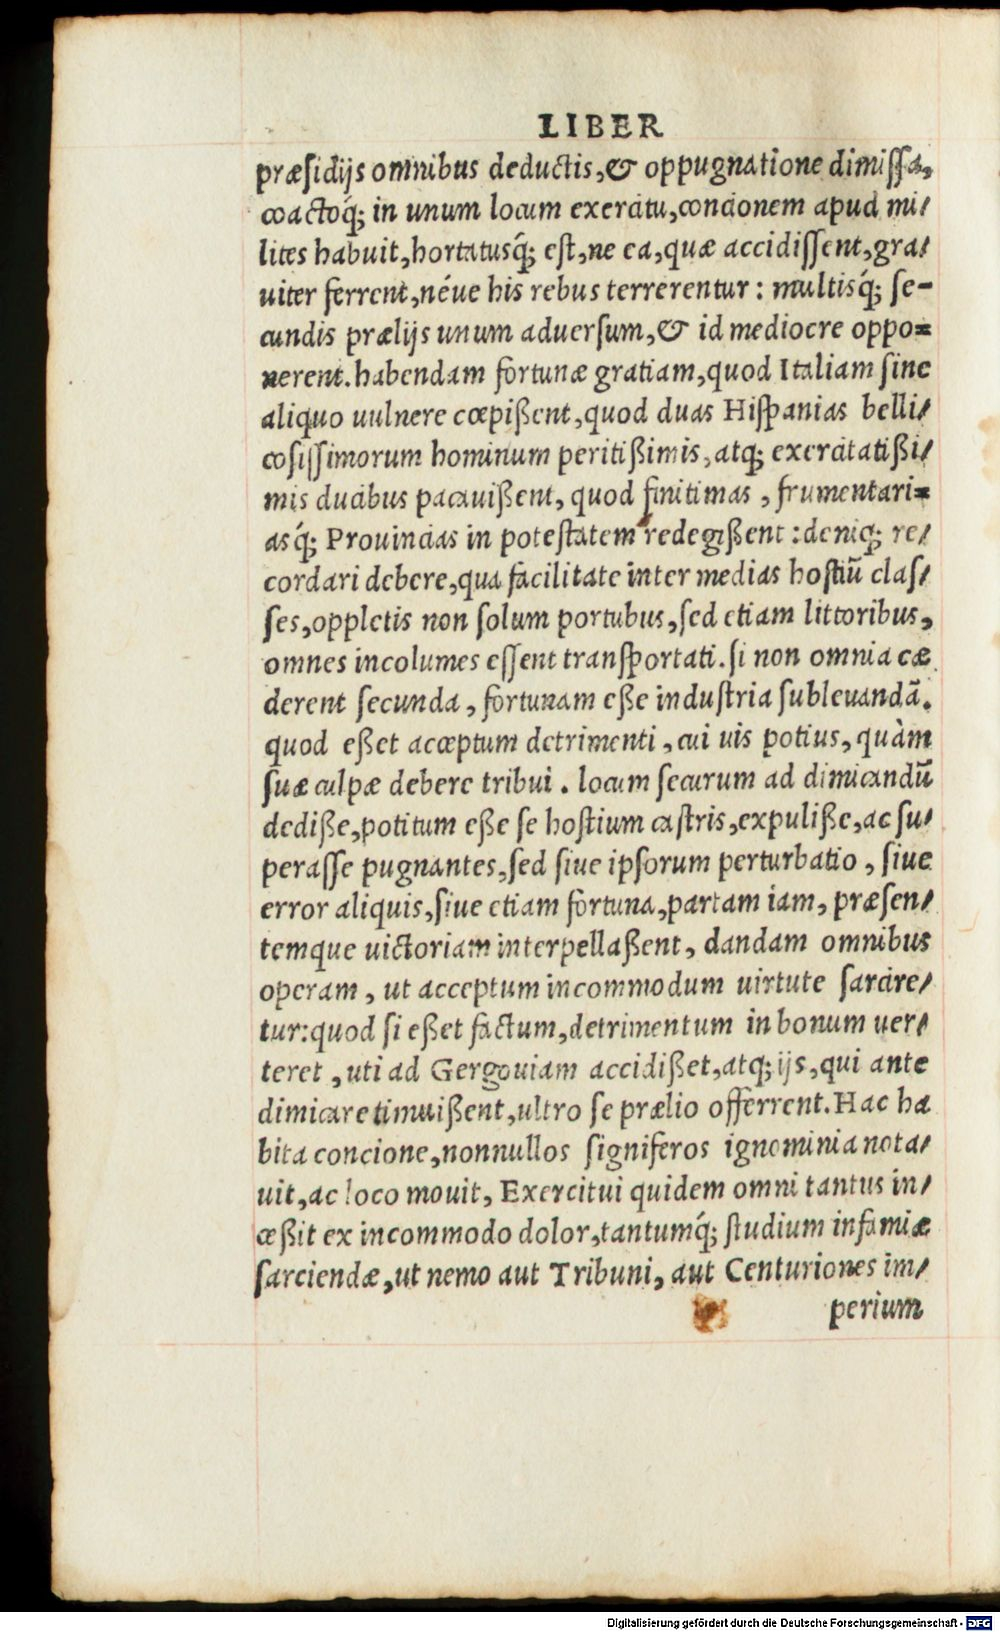 LIBER
præſidijs omnibus deductis,& oppugnatione dimiſſa,
coactoq́; in unum locum exercitu,concionem apud mi/
lites habuit,hortatusq́; eſt,ne ea,quæ accidiſſent,gra/
uiter ferrent,néue his rebus terrerentur: multisq́; ſe-
cundis prælijs unum aduerſum,& id mediocre oppo=
nerent.habendam fortunæ gratiam,quod Italiam ſine
aliquo uulnere cœpißent,quod duas Hiſpanias belli/
coſiſſimorum hominum peritißimis,atq; exercitatißi/
mis ducibus pacauißent, quod finitimas, frumentari=
asq́; Prouincias in poteſtatem redegißent:deniq; re/
cordari debere,qua facilitate inter medias hoſtiũ claſ/
ſes,oppletis non ſolum portubus,ſed etiam littoribus,
omnes incolumes eſſent tranſportati.ſi non omnia cæ
derent ſecunda, fortunam eße induſtria ſubleuandã.
quod eßet acceptum detrimenti, cui uis potius, quàm
ſuæ culpæ debere tribui. locum ſecurum ad dimicandũ
dediße,potitum eße ſe hoſtium caſtris,expuliße,ac ſu/
peraſſe pugnantes,ſed ſiue ipſorum perturbatio, ſiue
error aliquis,ſiue etiam fortuna,partam iam, præſen/
temque uictoriam interpellaßent, dandam omnibus
operam, ut acceptum incommodum uirtute ſarcire/
tur:quod ſi eßet factum,detrimentum in bonum uer/
teret, uti ad Gergouiam accidißet,atq; ijs,qui ante
dimicare timuißent,ultro ſe prælio offerrent.Hac ha
bita concione,nonnullos ſigniferos ignominia nota/
uit,ac loco mouit, Exercitui quidem omni tantus in/
ceßit ex incommodo dolor,tantumq́; ſtudium infamiæ
ſarciendæ,ut nemo aut Tribuni, aut Centuriones im/
perium
Digitalisierung gefördert durch die Deutsche Forschungsgemeinschaft - DFG